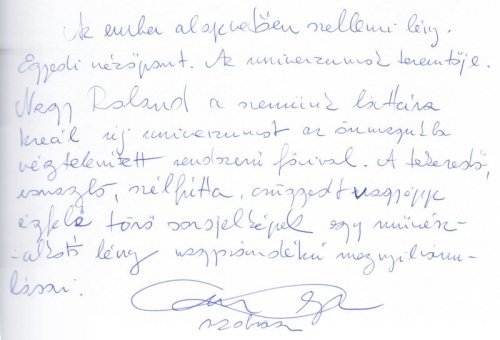 Az ember alapvetően szellemi lény.
Egyedi nézőpont. Az univerzumok teremtője.
Nagy Roland a szemünk láttára
kreál új univerzumot az önmagukba
végtelenített rendszerű fáival. A tekeredő,
vonagló, szélfútta, csüggedt vagy
égfelé törő sorsjelképek egy művész-
-alkotó lény nagyívű megnyilvánu-
lásai.
szobrász